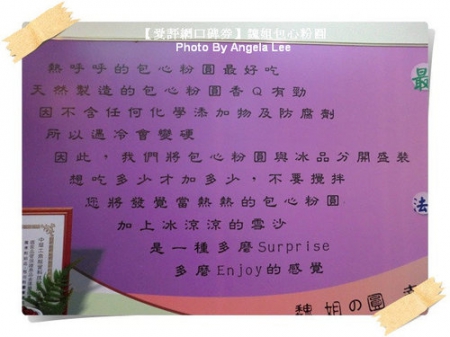 【愛評網口碑券】魏姐包心粉圓
Photo By Angela Lee
熱呼呼的包心粉圓最好吃
天然製造的包心粉圓香Q有勁
因不含任何化學添加物及防腐劑
所以過冷會變硬
因此，我們將包心粉圓與冰品分開盛裝
想吃多少才加多少，不要攪拌
您將發覺當熱熱的包心粉圓
加上冰涼涼的雪沙
是一種多麼Surprise
多磨Enjoy的感覺
魏姐の圓
最
法